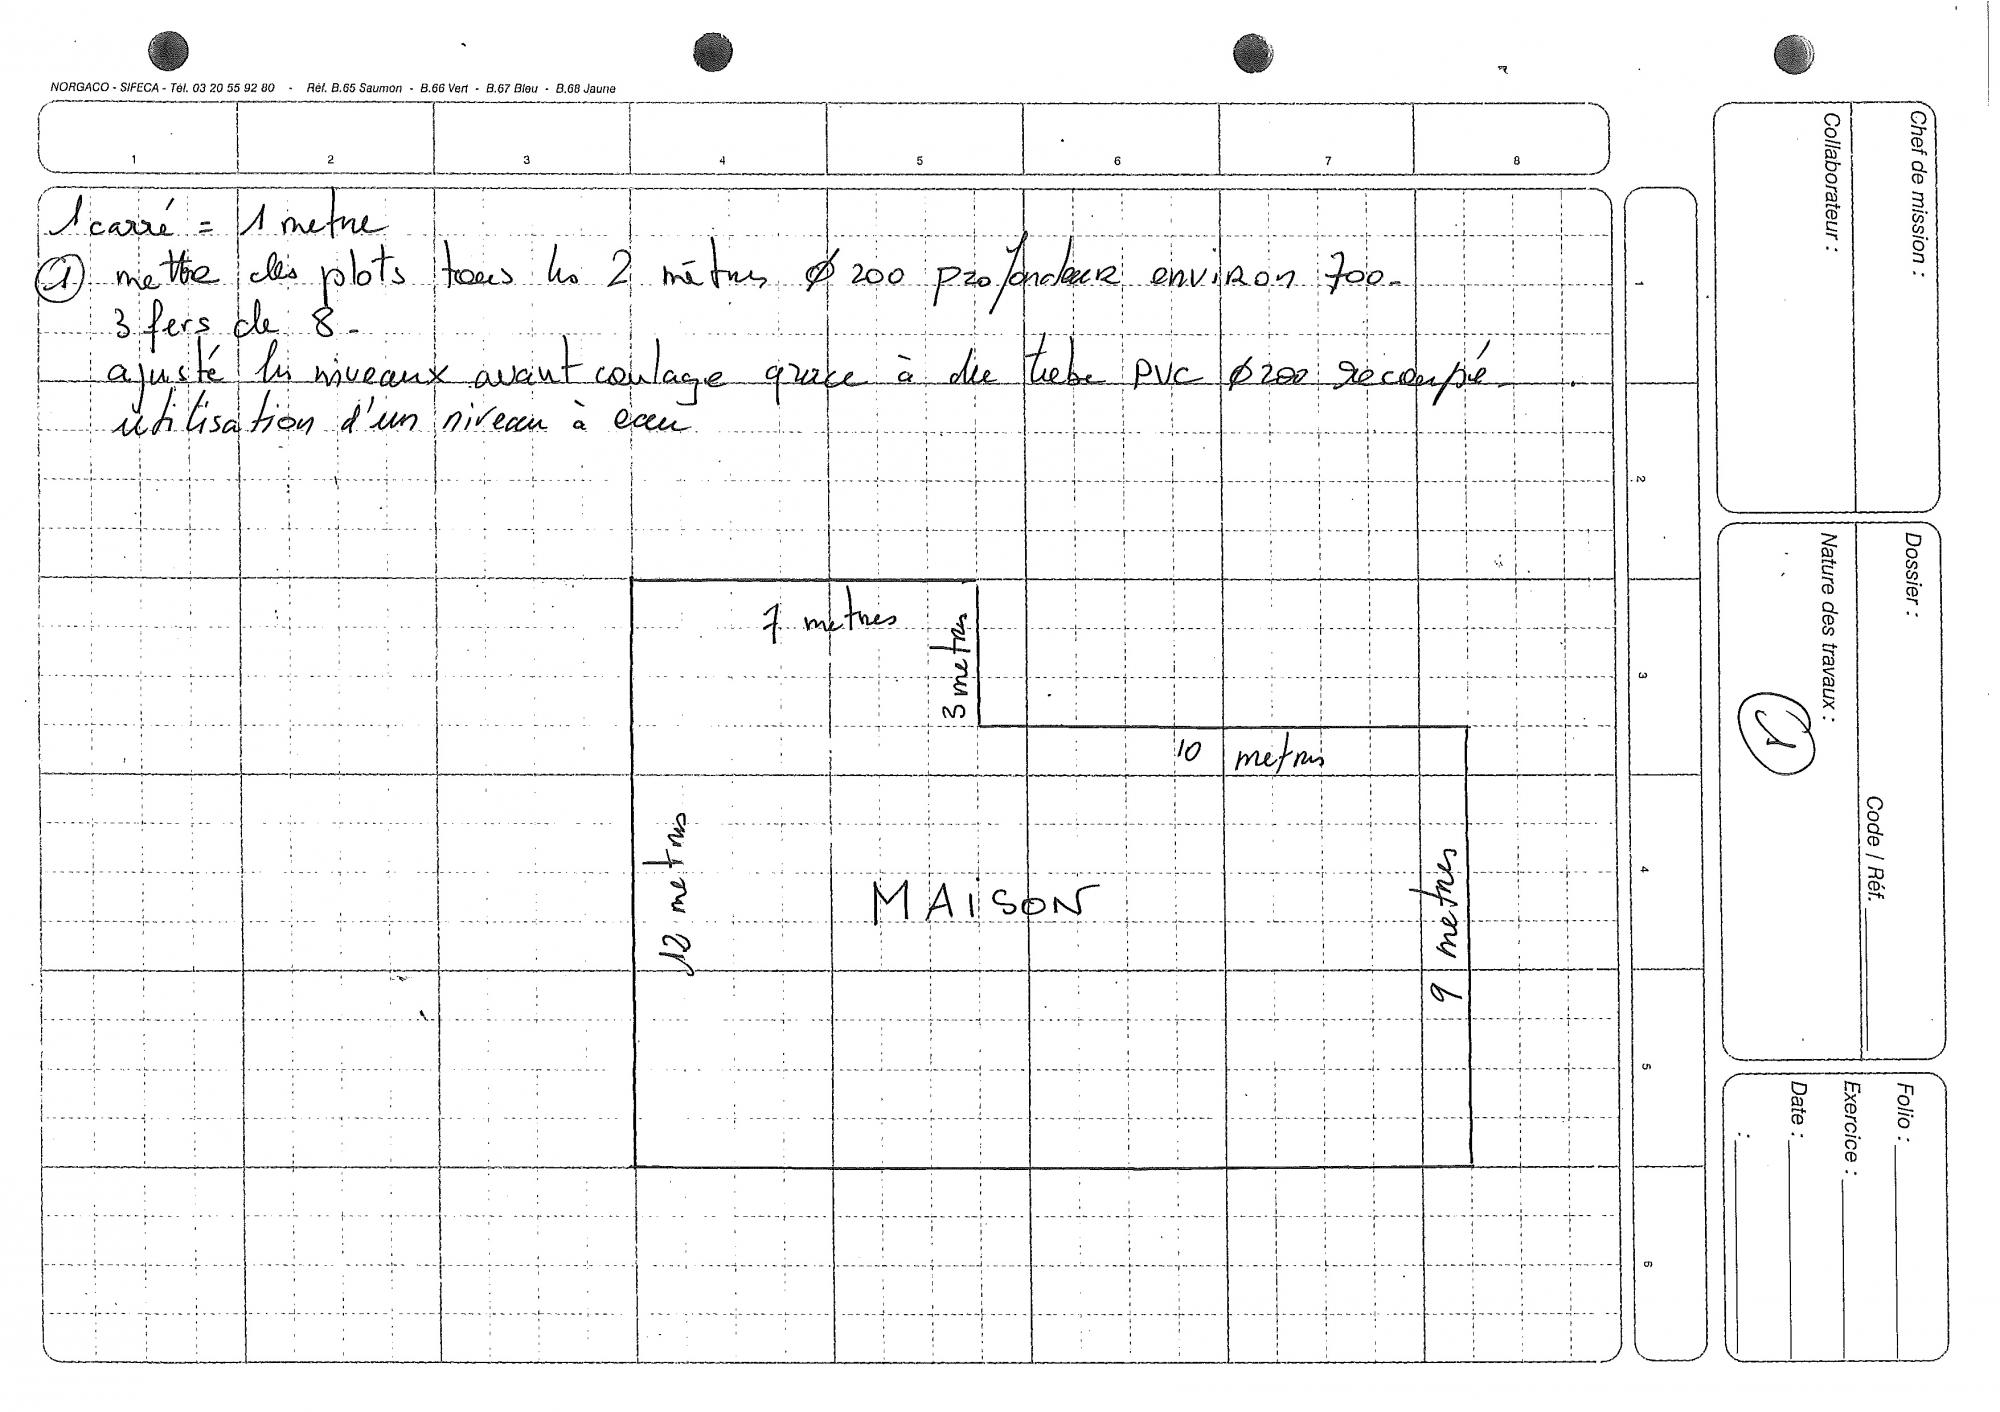 NORGACO - SIFECA - Tél. 03 20 55 92 80 - Réf. B.65 Saumon - B.66 Vert - B.67 Bleu - B.68 Jaune
1 2 3 4 5 6 7 8
1 carré = 1 metre
① mettre des plots tous les 2 mètres Ø 200 profondeur environ 700-
3 fers de 8-
ajusté les niveaux avant coulage grace à du tube PVC Ø 200 recoupé-
utilisation d'un niveau à eau
7 metres
3 metres
10 metres
12 metres
MAiSON
9 metres
1
2
3
4
5
6
Chef de mission :
Collaborateur :
Dossier :
Code / Réf.
Nature des travaux :
①
Folio :
Exercice :
Date :
: